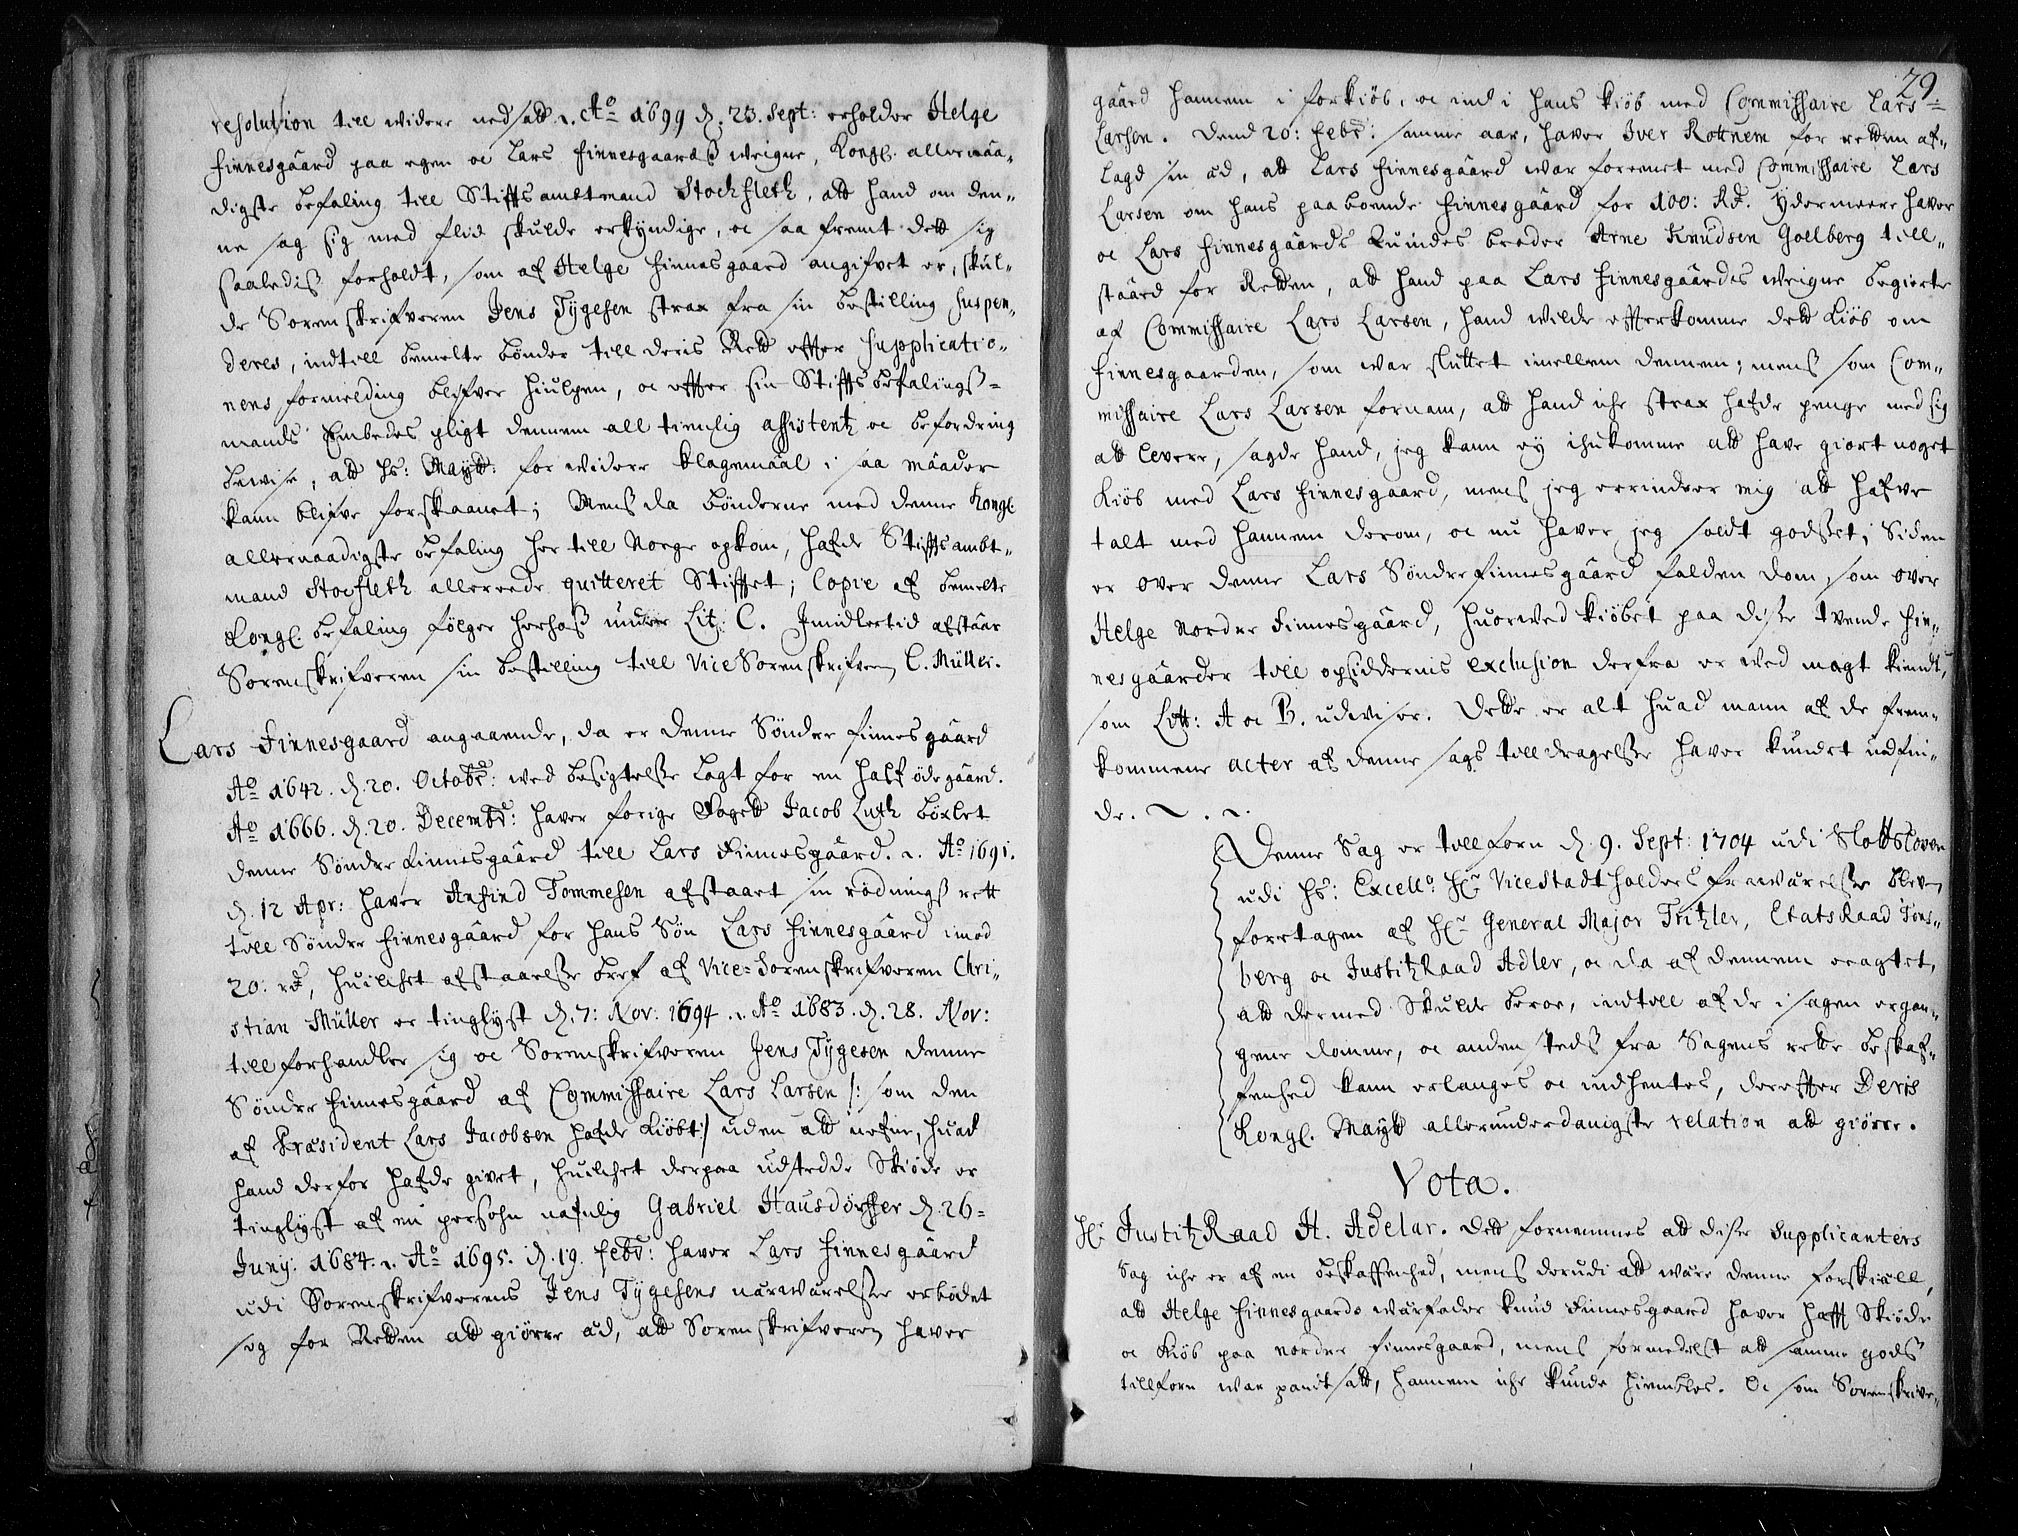 resolution till widere nedsatt. Ao 1699 d. 23. Sept: erholder Helge
Finnesgaard paa egen oc Lars Finnesgaardß weigne, Kongl. allernaa-
digste befaling till Stiffts ambtmand Stochfleth, att hand om den-
ne sag sig med flid skulde erkyndige, oc saa fremt dett sig
saaledis forholdt, som af Helge Finnesgaard angifvet er, skul-
de Sorenskrifveren Jens Tygesen strax fra sin bestilling suspen-
deres, indtill bemelte bønder till deris Rett effter supplicatio-
nens formelding blifver hiulpen, oc effter sin Stiffts befalingß-
mands Embedes pligt dennem all tienlig assistentz oc befordring
bewise, att Hs: Maytt: for widere klagemaal i saa maader
kann blifve forskaanet; Mens da bønderne med denne Kongl.
allernaadigste befaling her till Norge opkom, hafde Stiffts ambt-
mand Stocfleth allereede quitteret Stifftet; Copie af bemelte
Kongl. befaling følger herhoß under Lit: C. Imidlertid afstaar
Sorenskrifveren sin bestilling till Vice Sorenskrifveren C. Müller.
Lars Finnesgaard angaaende, da er denne Søndre Finnesgaard
Ao 1642. d. 20. Octobr: wed besigtelse lagt for en half ødegaard.
Ao 1666. d. 20. Decembr: haver forige Fogett Jacob Luth böxlet
denne Søndre Finnesgaard till Lars Finnesgaard. Ao 1691.
d. 12 Apr: haver Anfind Tommesen afstaaet sin rødnings rett
till Søndre Finnesgaard for hans Søn Lars Finnesgaard imod
20. rd, huilchet afstaaelse bref af Vice-Sorenskrifveren Chri-
stian Müller er tinglyst d. 7: Nov: 1694. Ao 1683. d. 28. Nov:
till forhandler sig oc Sorenskrifveren Jens Tygesen denne
Søndre Finnesgaard af Commissaire Lars Larsen /: som den
af Præsident Lars Jacobsen hafde kiøbt:/ uden att nefne, huad
hand derfor hafde givet, huilchet derpaa udstedde Skiøde er
tinglyst af en persohn nafnlig Gabriel Hausdørffer d. 26-
Juny: 1684. Ao 1695. d. 19. Febr: haver Lars Finnesgaard
udi Sorenskrifverens Jens Tygesens nærwærelse erbødet
sig for Retten att giørre æd, att Sorenskrifveren haver
29
gaard hannem i forkiøb, oc ind i hans kiøb med Commissaire Lars
Larsen. Dend 20: Febr: samme aar, haver Iver Rottnem for retten af-
lagd sin æd, att Lars Finnesgaard war foreenet med Commissaire Lars
Larsen om hans paaboende Finnesgaard for 100: Rd. Ydermeere haver
oc Lars Finnesgaards Quindes broder Arne Knudsen Goelberg till-
staaed for Retten, att hand paa Lars Finnesgaardes weigne begierte
af Commissaire Lars Larsen, hand wilde effterkomme dett Kiøb om
Finnesgaarden, som war sluttet imellem dennem; mens som Com-
missaire Lars Larsen fornam, att hand iche strax hafde penge med sig
att levere, sagde hand, jeg kann ey ihukomme att have giort noget
Kiøb med Lars Finnesgaard, mens jeg errindrer mig att hafve
talt med hannem derom, oc nu haver jeg soldt godset; Siden
er over denne Lars Søndre Finnesgaard falden dom, som over
Helge Nordre Finnesgaard, huorwed kiøbet paa disse tvende Fin-
nesgaarder till opsiddernis exclusion derfra er wed magt kiendt,
som Litt: A oc B. udwiser. Dette er alt huad mann af de frem-
kommene acter af denne sags tilldragelse haver kundet udfin-
de.
Denne Sag er till forn d. 9. Sept: 1704 udi Slottsloven
udi Hs: Excell. Hr. Vice Stadtholders frawærelse bleven
foretagen af Hr. General Major Tritzler, EtatsRaad Tons-
berg oc JustitzRaad Adler, oc da af dennem eragtet,
att dermed skulde beroe, indtill af de i sagen ergan-
gene domme, oc anden steds fra Sagens rette beskaf-
fenhed kann erlanges oc indhentes, dereffter Deris
Kongl. Maytt allerunderdanigste relation att giørre.
Vota.
Hr. JustitzRaad H. Adelar. Dett fornemmes att disse Supplicanters
Sag iche er af en beskaffenhed, mens derudi att være denne forskiæll,
att Helge Finnesgaards wærfader Knud Finnesgaard haver hafft Skiøde
oc Kiøb paa Nordre Finnesgaard, mens formedelst att samme gods
tillforn war pantsatt, hannem iche kunde hiemles. Oc som Sorenskrive-